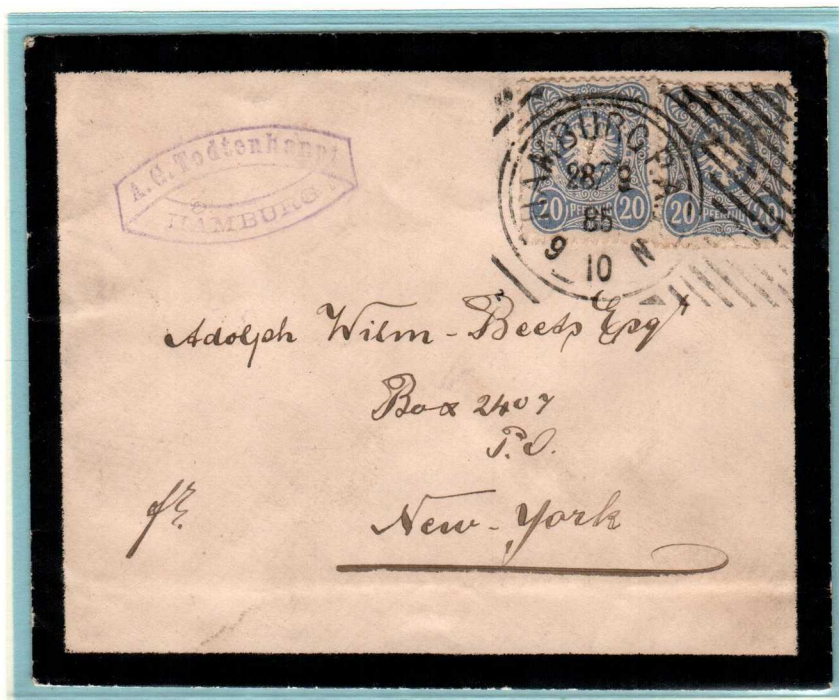 A.C. Todtenhaupt
HAMBURG.
HAMBURG P.A.
28/9
85
9 10 N
20 PFENNIG 20
20 PFENNIG 20
Adolph Wilm-Beets Esqr
Box 2407
P.O.
New-York
fr.